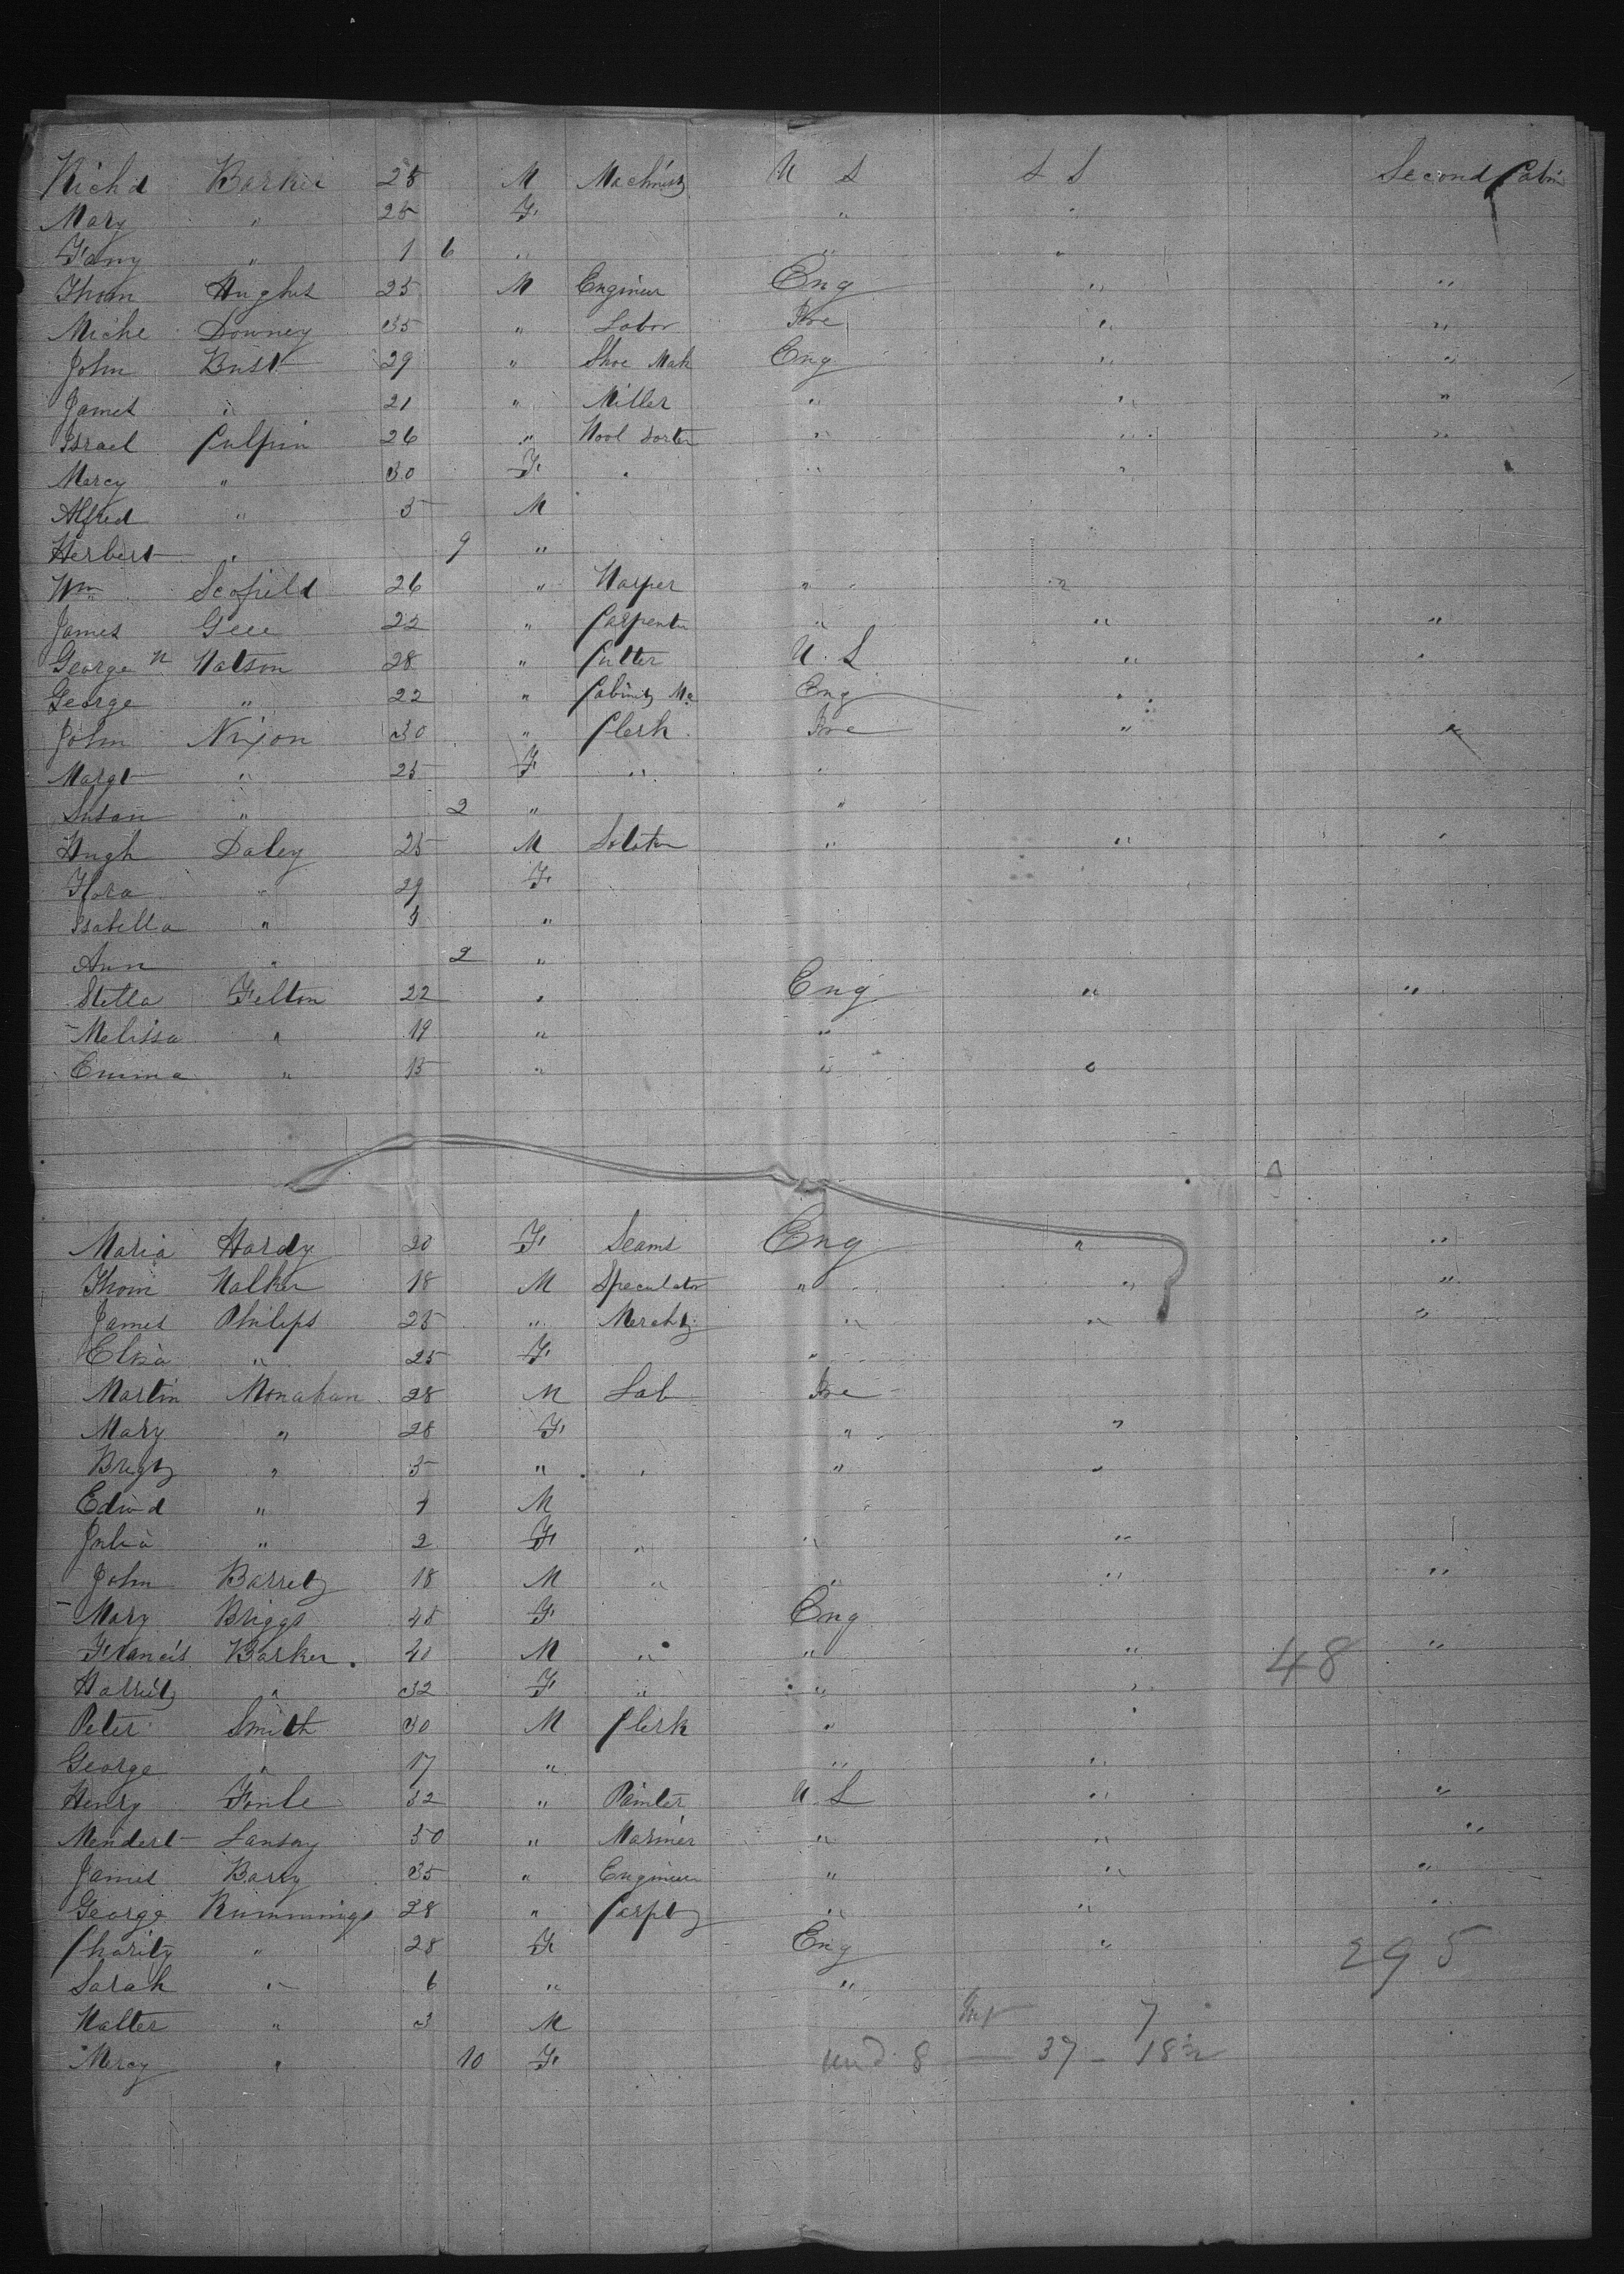 Richd Barker 25 M Machinist U S S S Second Cabin
Mary " 25 F " "
Fany " 1 6 " " "
Thom Hughes 25 M Engineer Eng " "
Miche Downey 35 " Labor Ire " "
John Bust 29 " Shoe Mak Eng " "
James " 21 " Miller " " "
Israel Culpin 26 " Wool Sorter " " "
Mercy " 30 F " " "
Alfred " 5 M
Herbert " 9 "
Wm Scofield 26 " Warper " "
James Geee 22 " Carpenter " " "
George W Watson 28 " Cutter U. S " "
George " 22 " Cabinet Ma Eng "
John Nixon 30 " Clerk Ire " "
Margt " 25 F " "
Susan " 2 " "
Hugh Daley 25 M " " "
Flora " 29 F
Isabella " 3 "
Ann " 2 "
Stella Felton 22 " Eng " "
Melissa " 19 " "
Emma " 15 " " "
Maria Hardy 20 F Seams Eng " "
Thom Walker 18 M Speculator " " "
James Philips 25 " Mercht " " "
Eliza " 25 F "
Martin Monahan 28 M Lab Ire
Mary " 28 F " "
Brigt " 5 " " "
Edwd " 1 M "
Julia " 2 F " " "
John Barret 18 M " " " "
Mary Briggs 45 F Eng
Francis Barker 40 M " " " 48 "
Harriet " 32 F " " "
Peter Smith 30 M Clerk " "
George " 17 " " "
Henry 32 " Painter U. S " "
Mendert Lansay 50 " Mariner " " "
James Barry 35 " Engineer " " "
George Rummings 28 " Carpt " " "
Charity " 28 F Eng " 295
Sarah " 6 " "
Walter " 3 M Inf 7
Mercy " 10 F und 8 — 37 — 18½